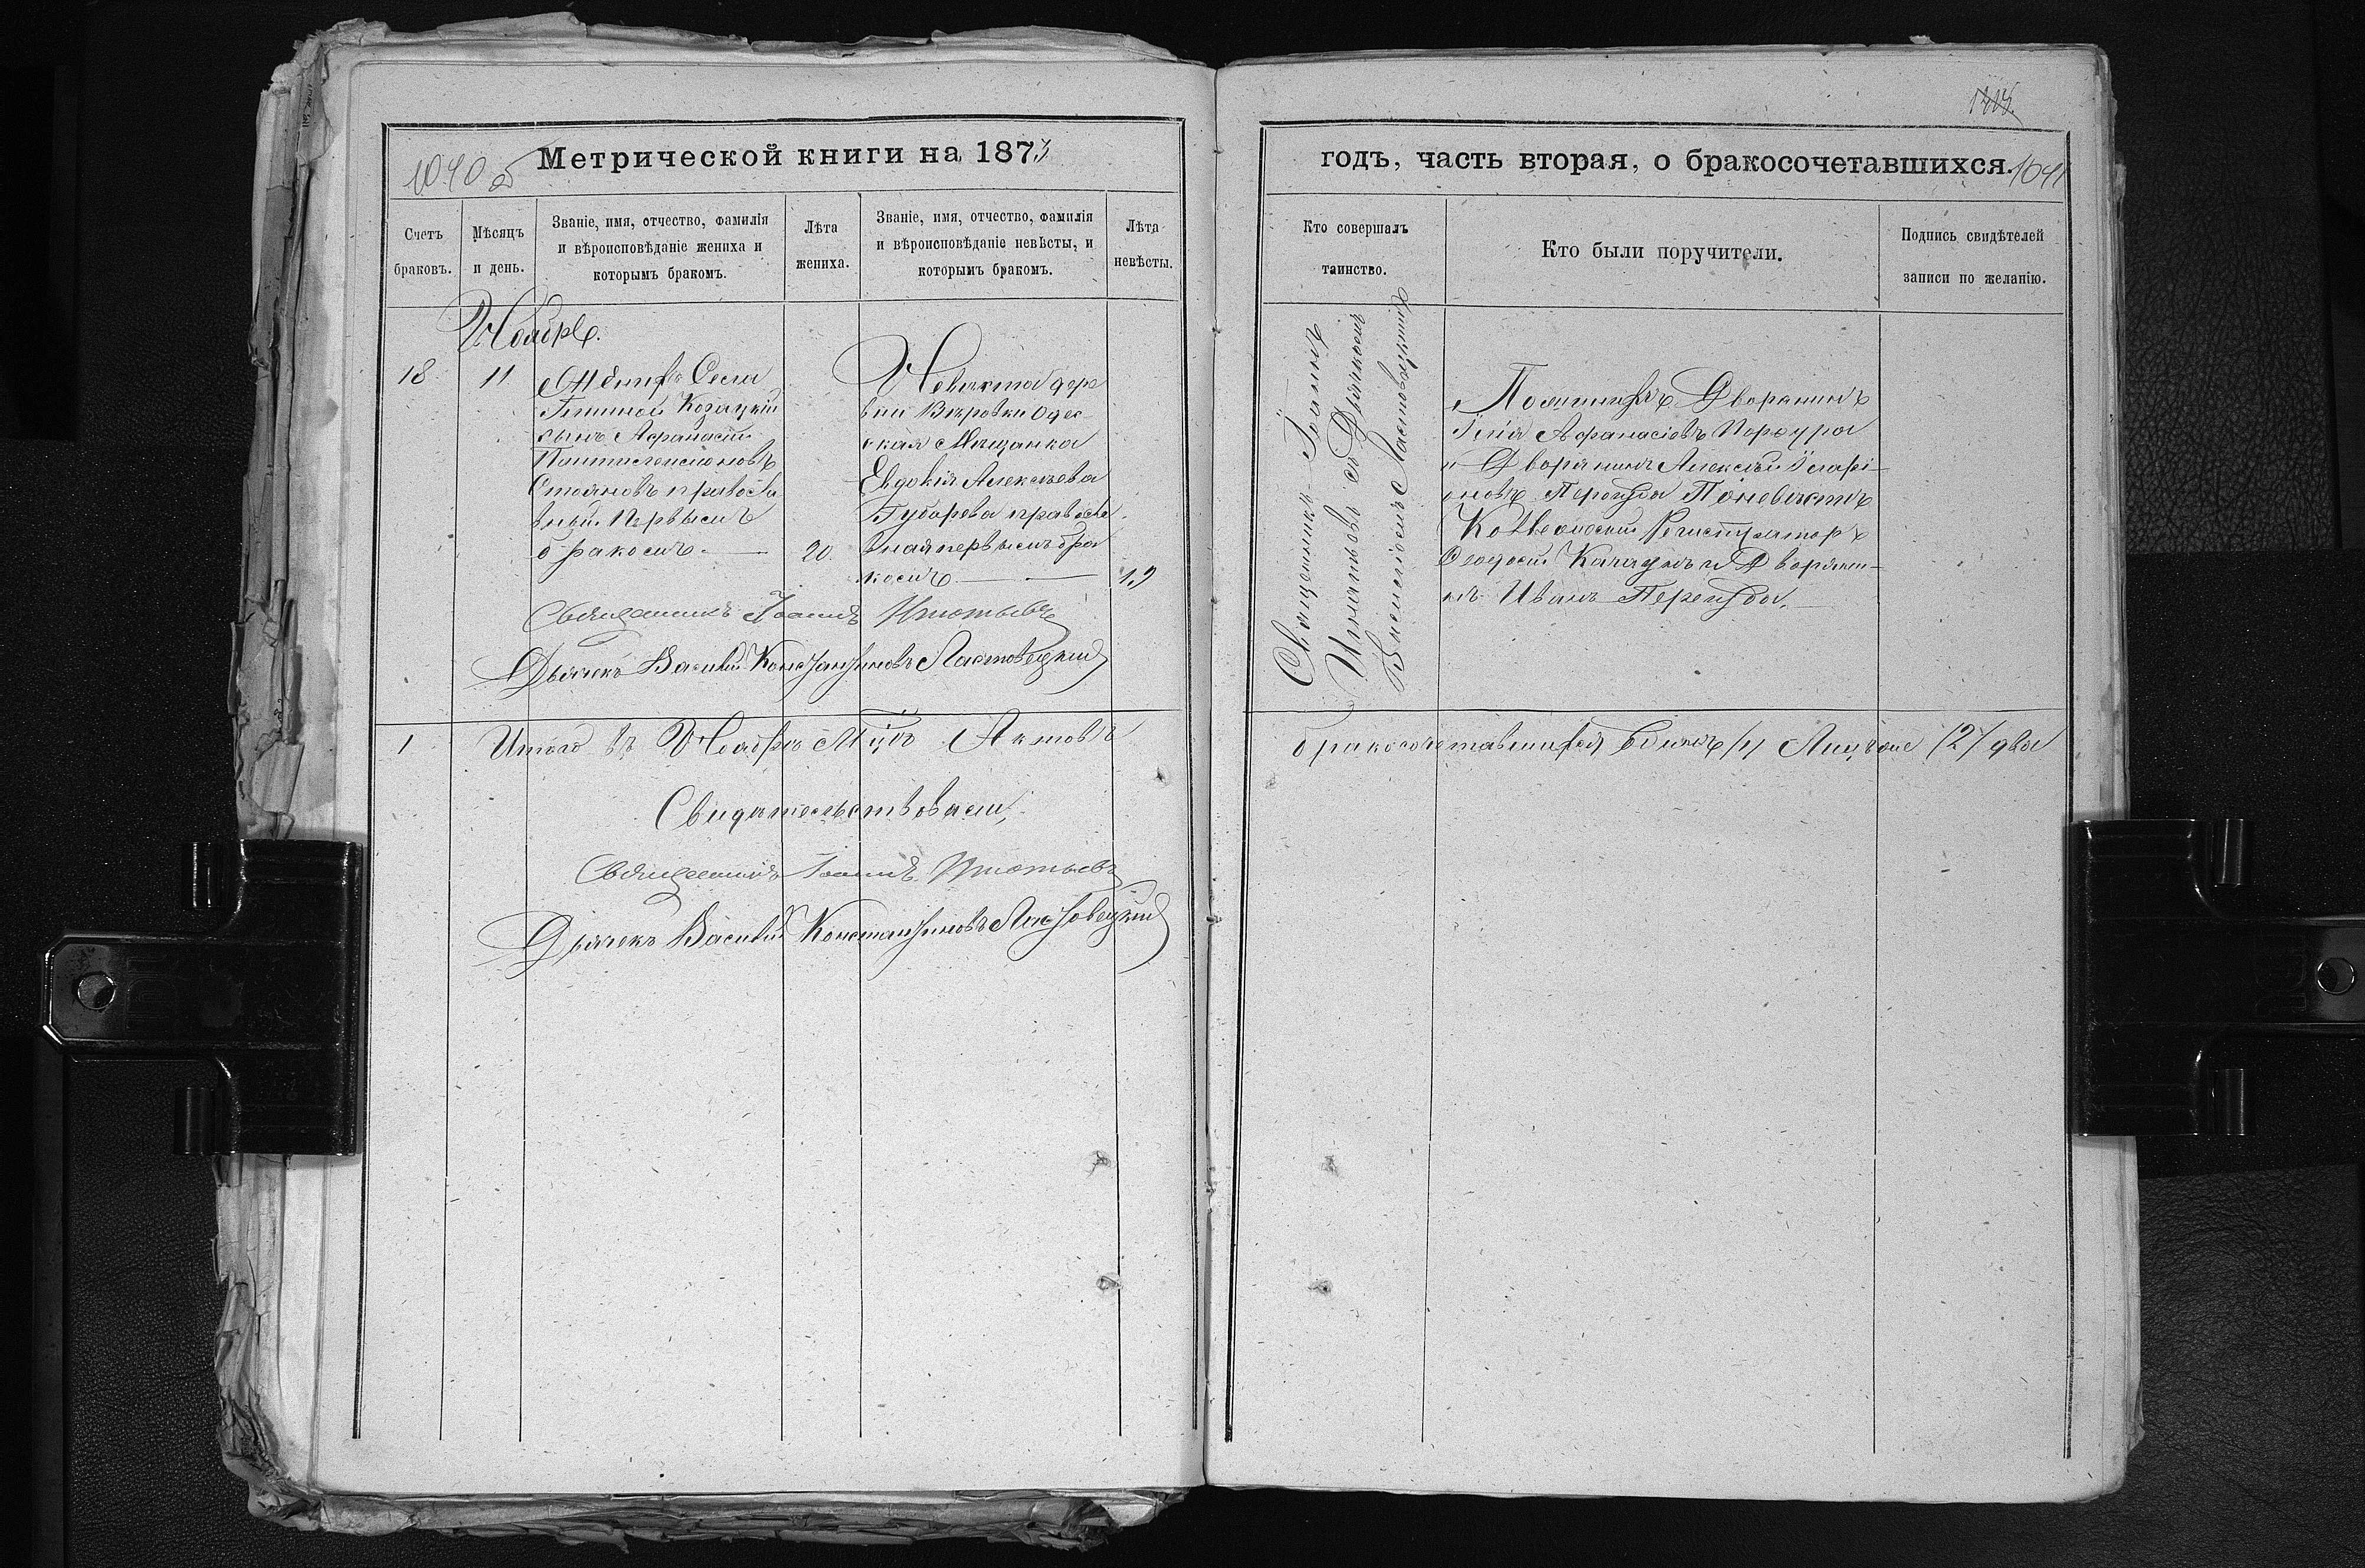 1040 об
Метрической книги на 1873
Счетъ браковъ.
Мѣсяцъ и день.
Званіе, имя, отчество, фамилія
и вѣроисповѣданіе жениха и
которымъ бракомъ.
Лѣта жениха.
Званіе, имя, отчество, фамилія
и вѣроисповѣданіе невѣсты, и
которымъ бракомъ.
Лѣта невѣсты.
Ноябрь.
18
11
Женихъ Села
Козацкій
сынъ Афанасій
Пантелеимоновъ
Стояновъ правосла
вный. Первымъ
бракомъ.
20
Невѣста дере
вни Викровки Одес
ская Мѣщанка
Евдокія Алексѣева
Губарева правосла
вная первымъ бра
комъ
19
Священникъ Іоаннъ Игнатьевъ
Дьячекъ Василій Константиновъ Ластовецкій
1
Итого въ Ноябрѣ М-цѣ Актовъ
Свидѣтельствовали,
Священникъ Іоаннъ Игнатьевъ
Дьячекъ Василій Константиновъ Ластовецкій
1041
годъ, часть вторая, о бракосочетавшихся.
Кто совершалъ
таинство.
Кто были поручители.
Подпись свидѣтелей
записи по желанію.
Священникъ Іоаннъ
Игнатьевъ съ Дьячкомъ
Василіемъ Ластовецкимъ
По женихѣ Дворянинъ
Илія Афанасіевъ Порохура
и Дворянинъ Алексѣй Иларі-
оновъ Перепда По невѣстѣ
Коллежскій Регистраторъ
Феодосій и Дворяни-
нъ Иванъ
бракосочетавшихся Одинъ /1/ Лицъ оне /2/ два